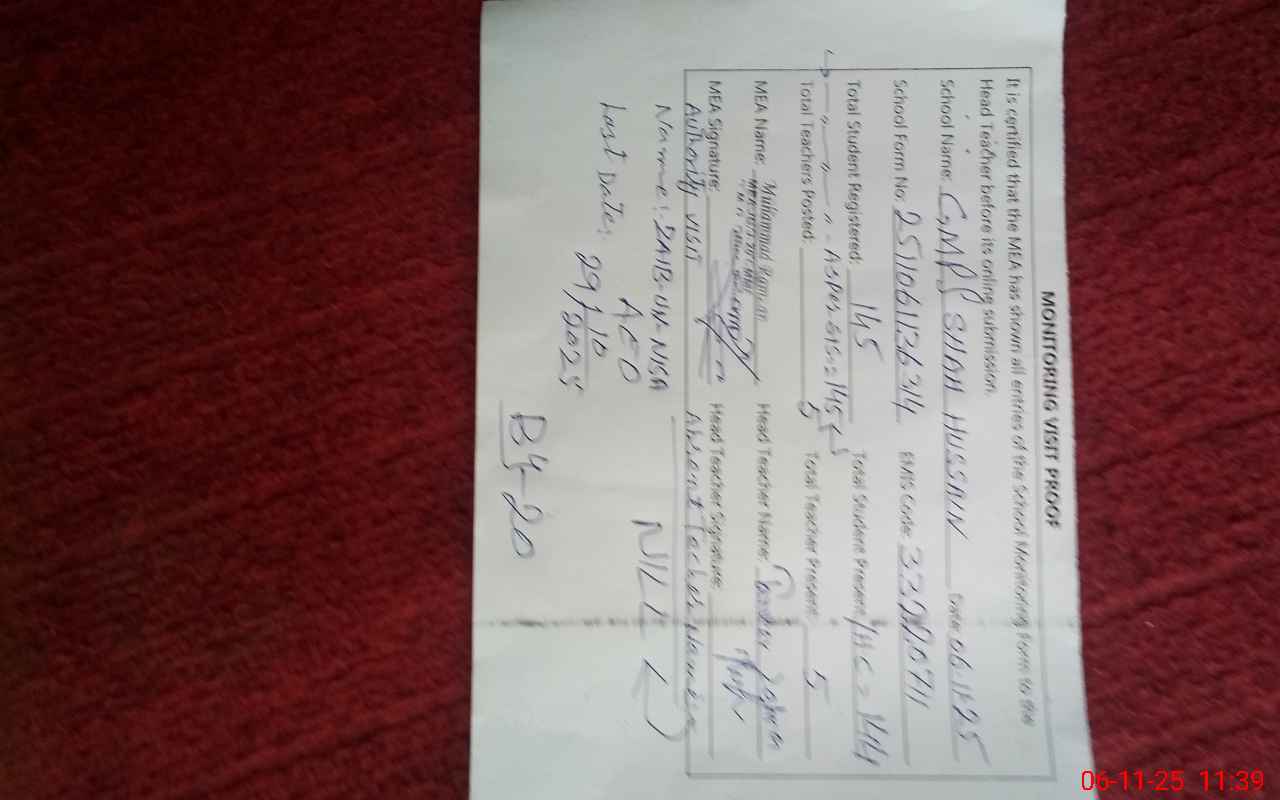 MONITORING VISIT PROOF
It is certified that the MEA has shown all entries of the School Monitoring Form to the
Head Teacher before its online submission.
School Name: GMPS SHAH HUSSAIN Date: 06-11-25
School Form No: 2511061126314 EMIS Code: 33220711
Total Student Registered: 145 Total Student Present: 144
As per SIS = 145
Total Teachers Posted: 5 Total Teacher Present: 5
MEA Name: Muhammad Ramzan Head Teacher Name:
MEA Signature: Head Teacher Signature:
Authority visit Absent Teacher Name
Name: ZAIB-UN-NISA NILL
AEO
Last Date: 29/10
2025
B4-20
06-11-25 11:39